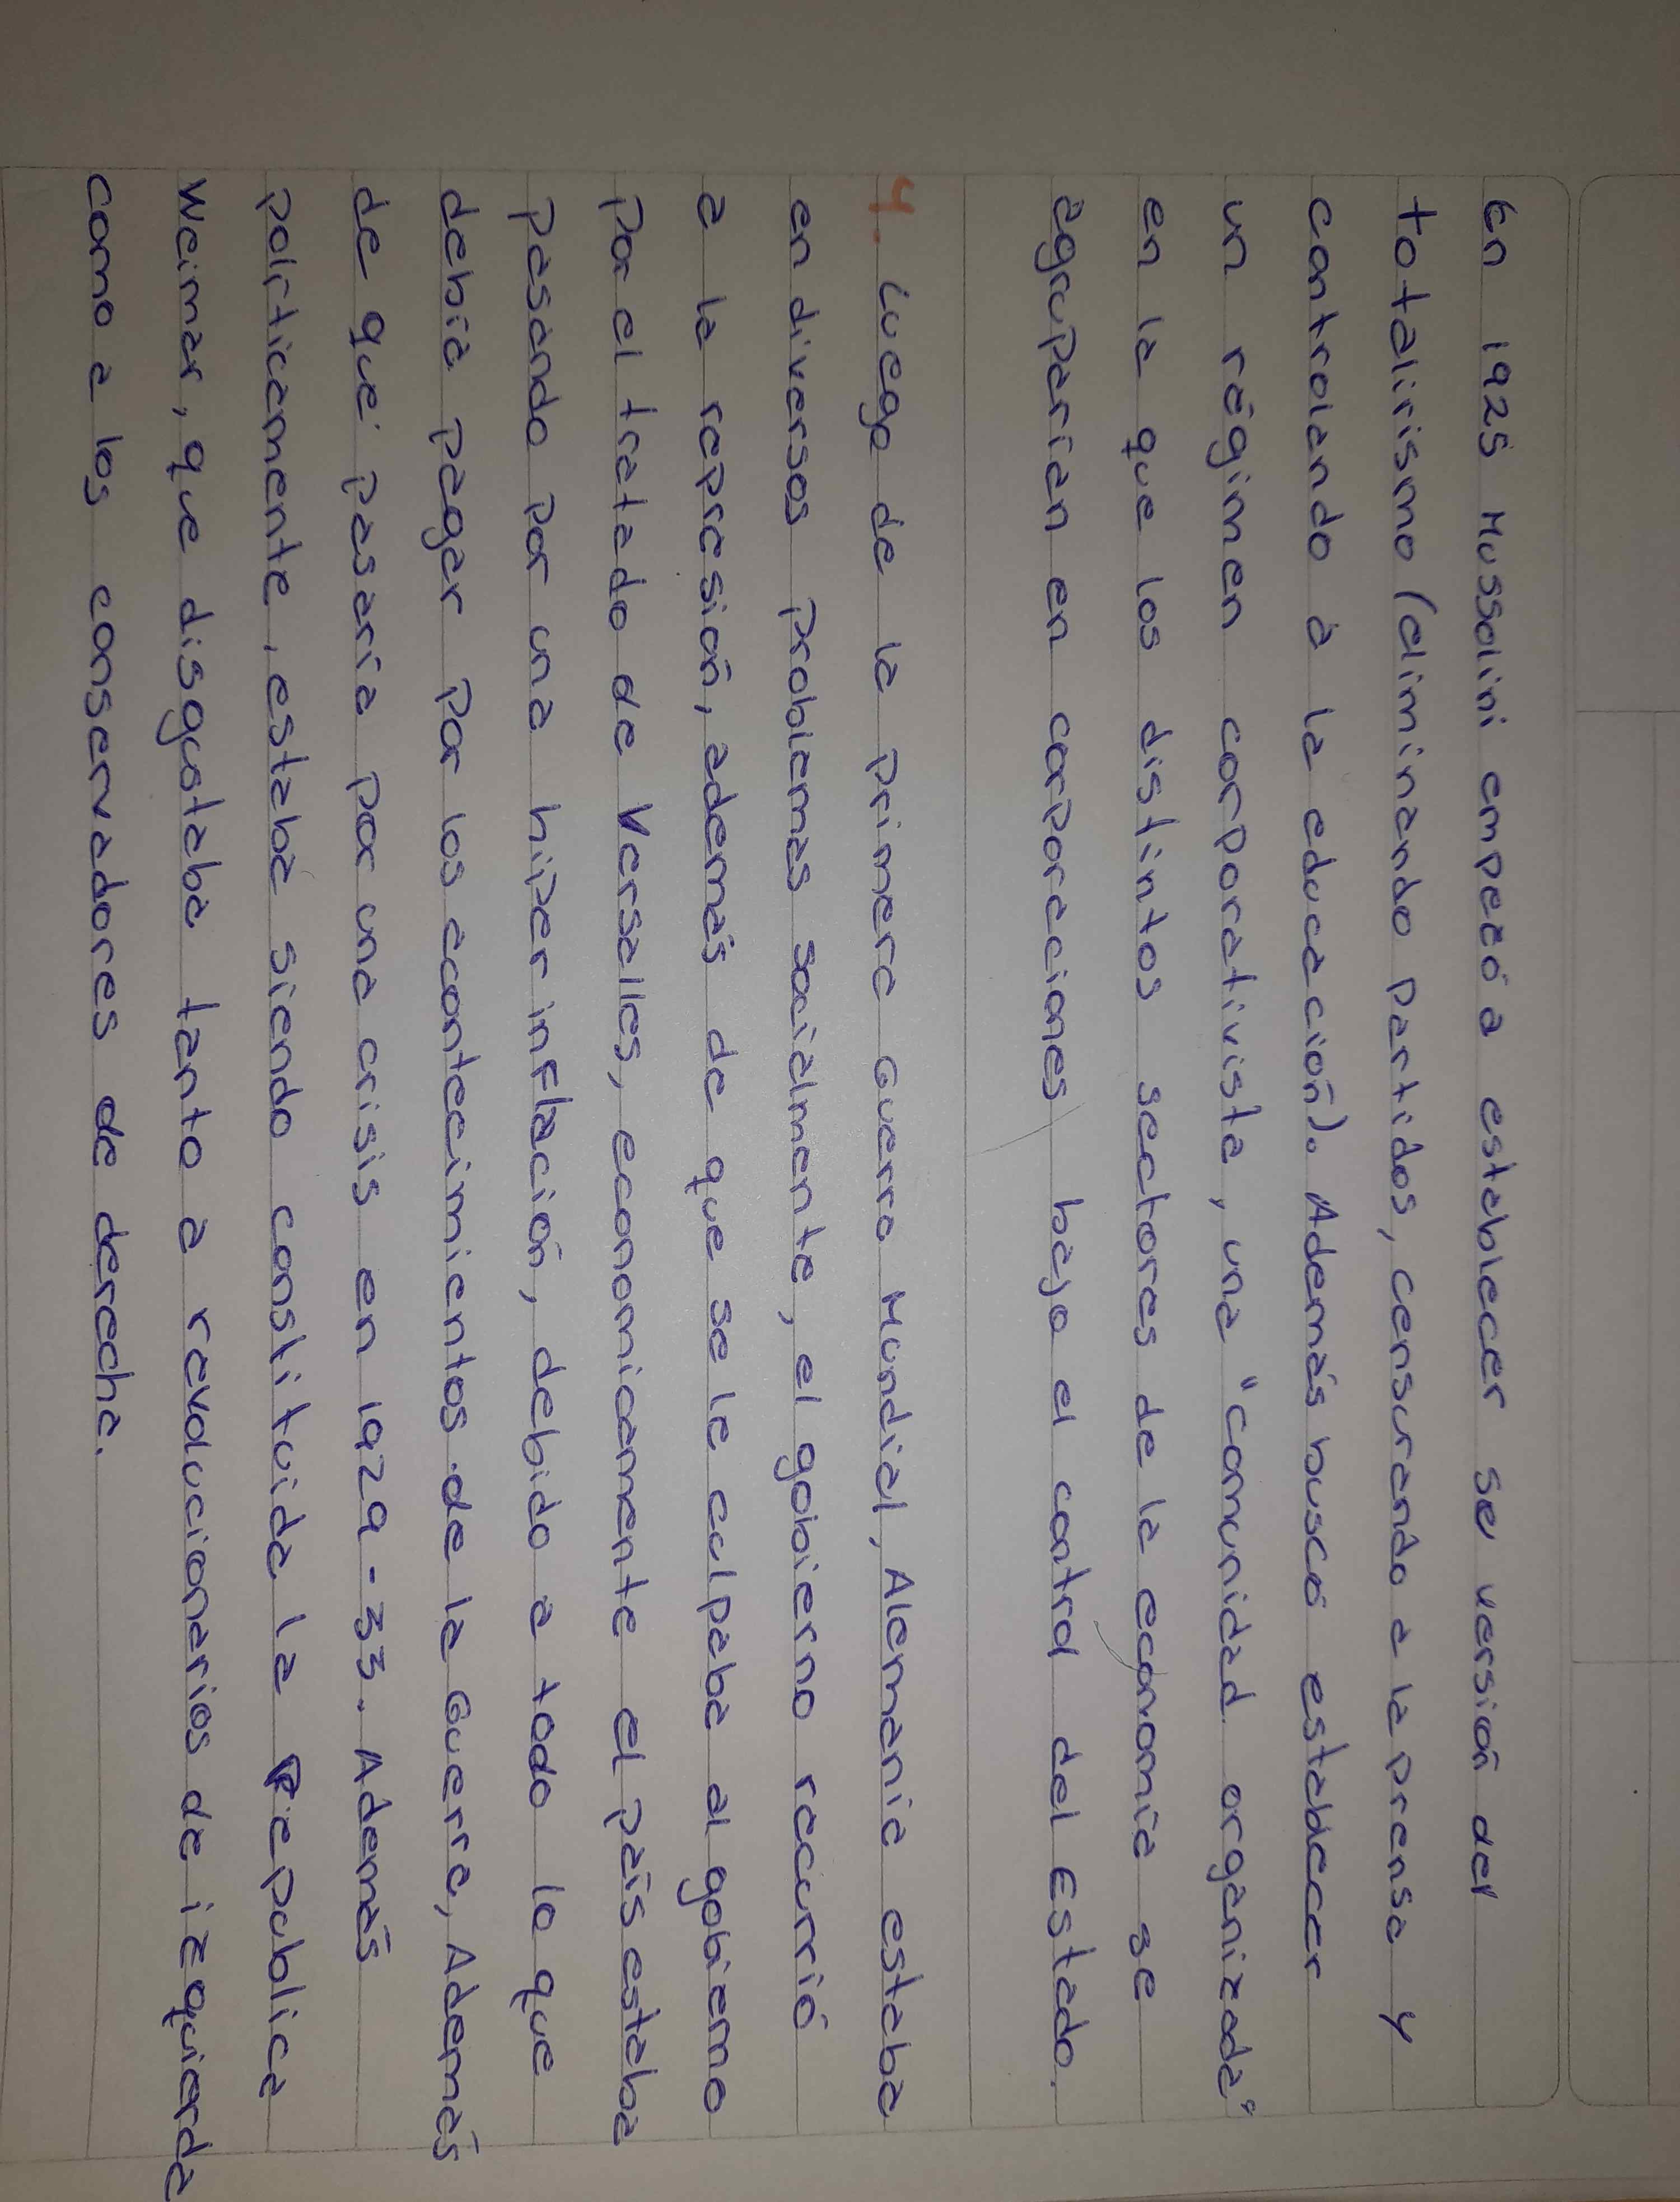 En 1925 Mussolini empezó a establecer su versión del
totalirismo (eliminando partidos, censurando a la prensa y
controlando a la educación). Además buscó establecer
un régimen corporativista, una "comunidad organizada"
en la que los distintos sectores de la economía se
agruparían en corporaciones bajo el control del Estado.
4. Luego de la primera Guerra Mundial, Alemania estaba
en diversos problemas socialmente, el gobierno recurrió
a la represión, además de que se le culpaba al gobierno
por el tratado de Versalles, economicamente el país estaba
pasando por una hiperinflación, debido a todo lo que
debía pagar por los acontecimientos de la Guerra, Además
de que pasaría por una crisis en 1929-33. Además
políticamente, estaba siendo constituida la Republica
Weimar, que disgustaba tanto a revolucionarios de izquierda
como a los conservadores de derecha.